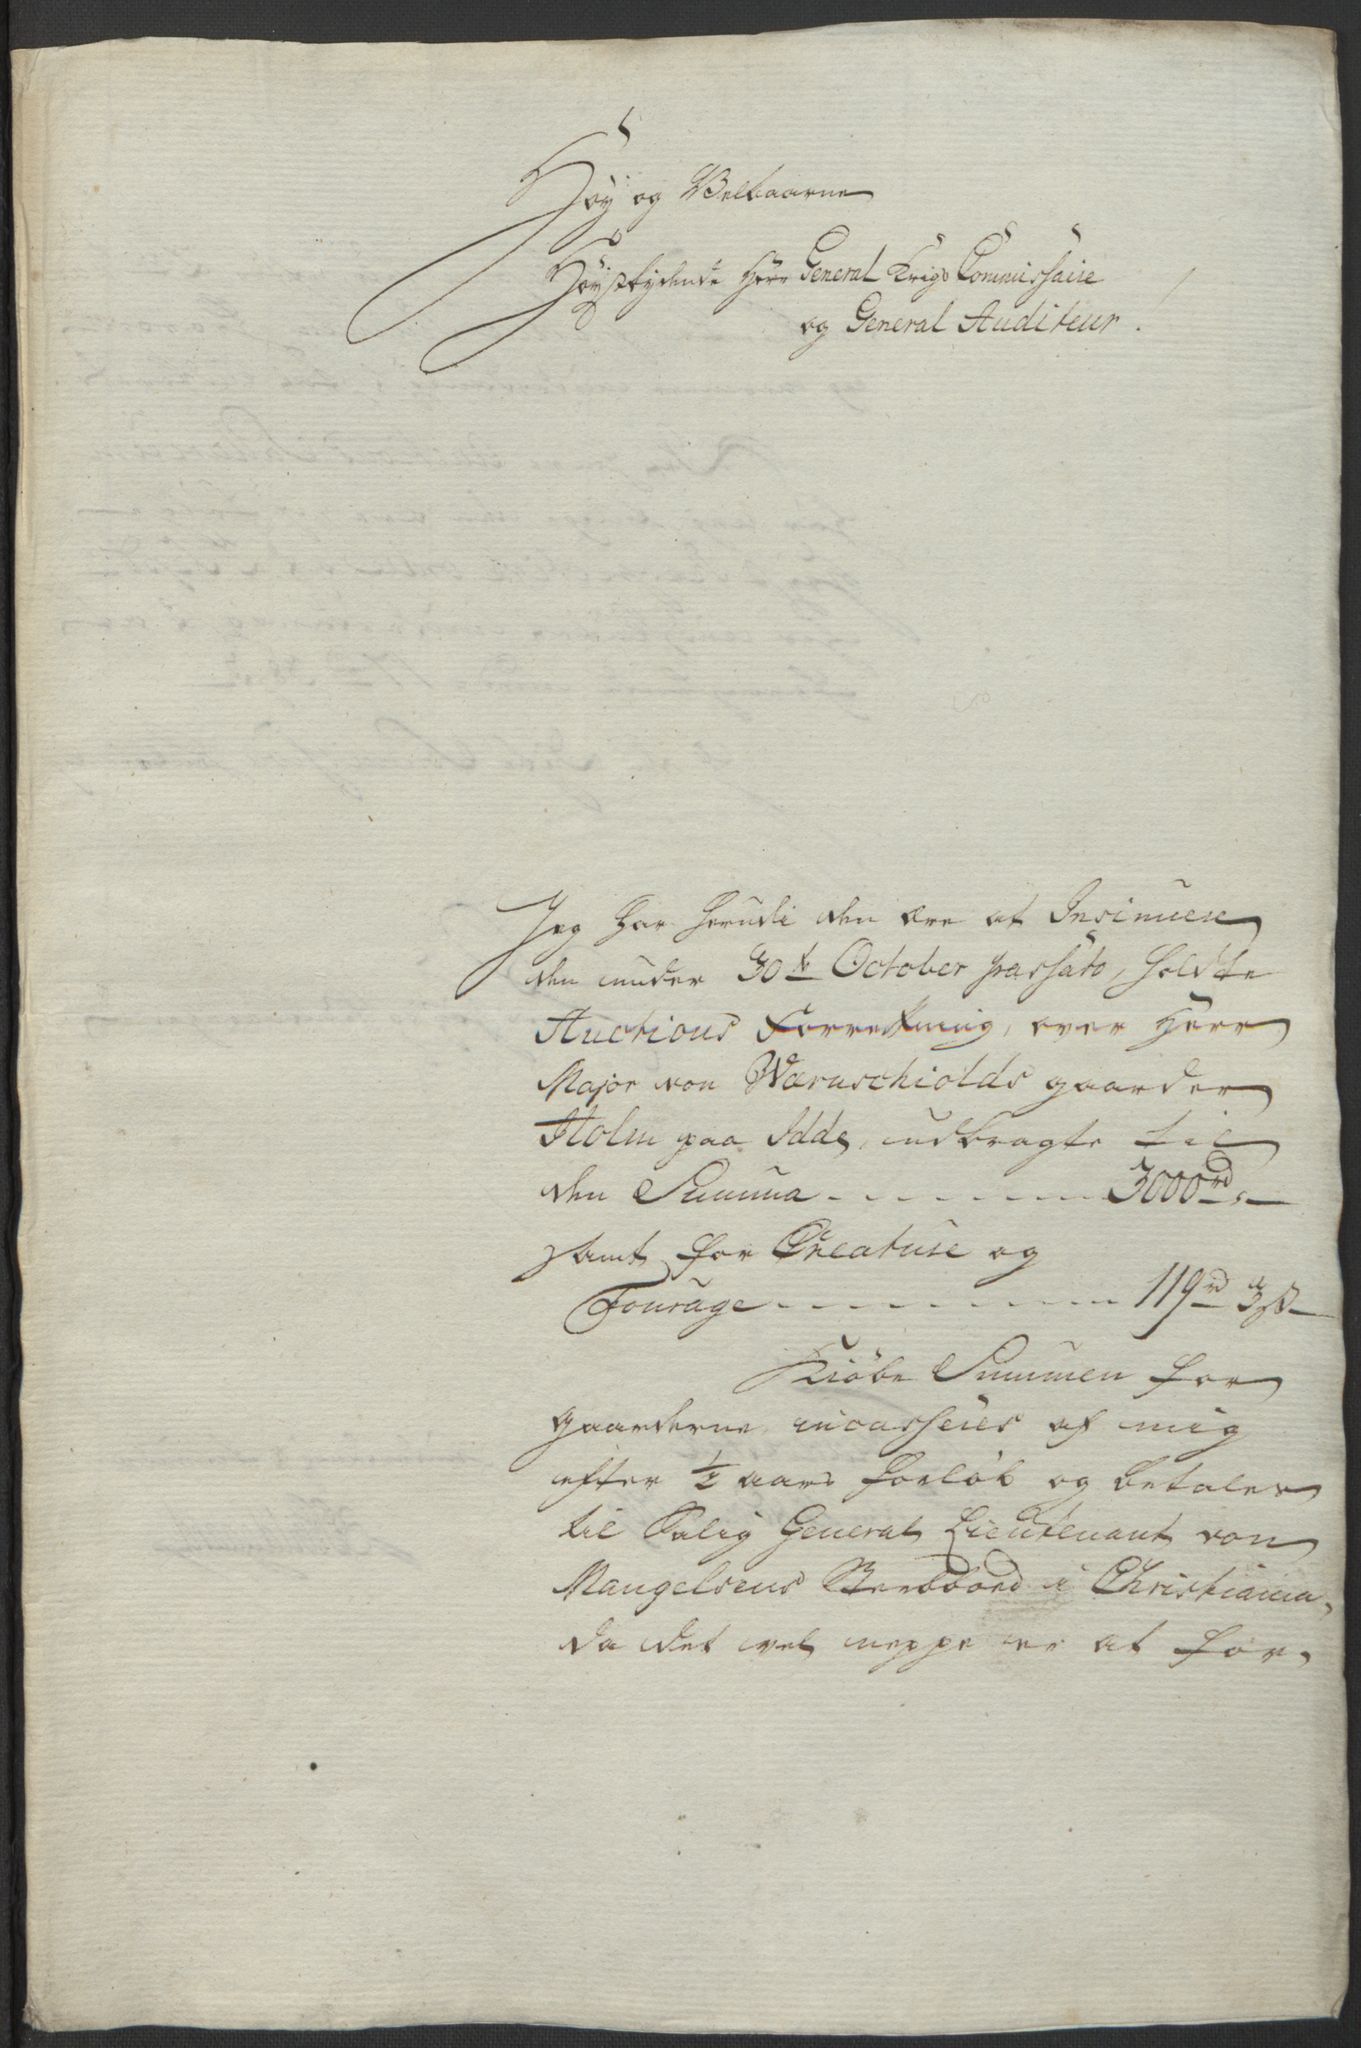 Høy og Velbaarne
Høystbydende Herr General Krigs Commissaire
og General Auditeur.
Jeg har herudi den ære at Insinuere
den under 30te October passato, holdte
Auctions Forretning, over Herr
Major von Wærnschiolds gaarder
Holm paa Idde, udbragte til
den Summa - - - - - - 3000 rd, -
samt for Creature og
Fourage - - - - - - - - 119 rd 3 ß
Kiøbe Summen for
gaarderne incasseres af mig
efter 1/2 aars forløb og betales
til Salig General Lieutenant von
Mangelsens Sterbboed i Christiania,
da det vel neppe er at for-